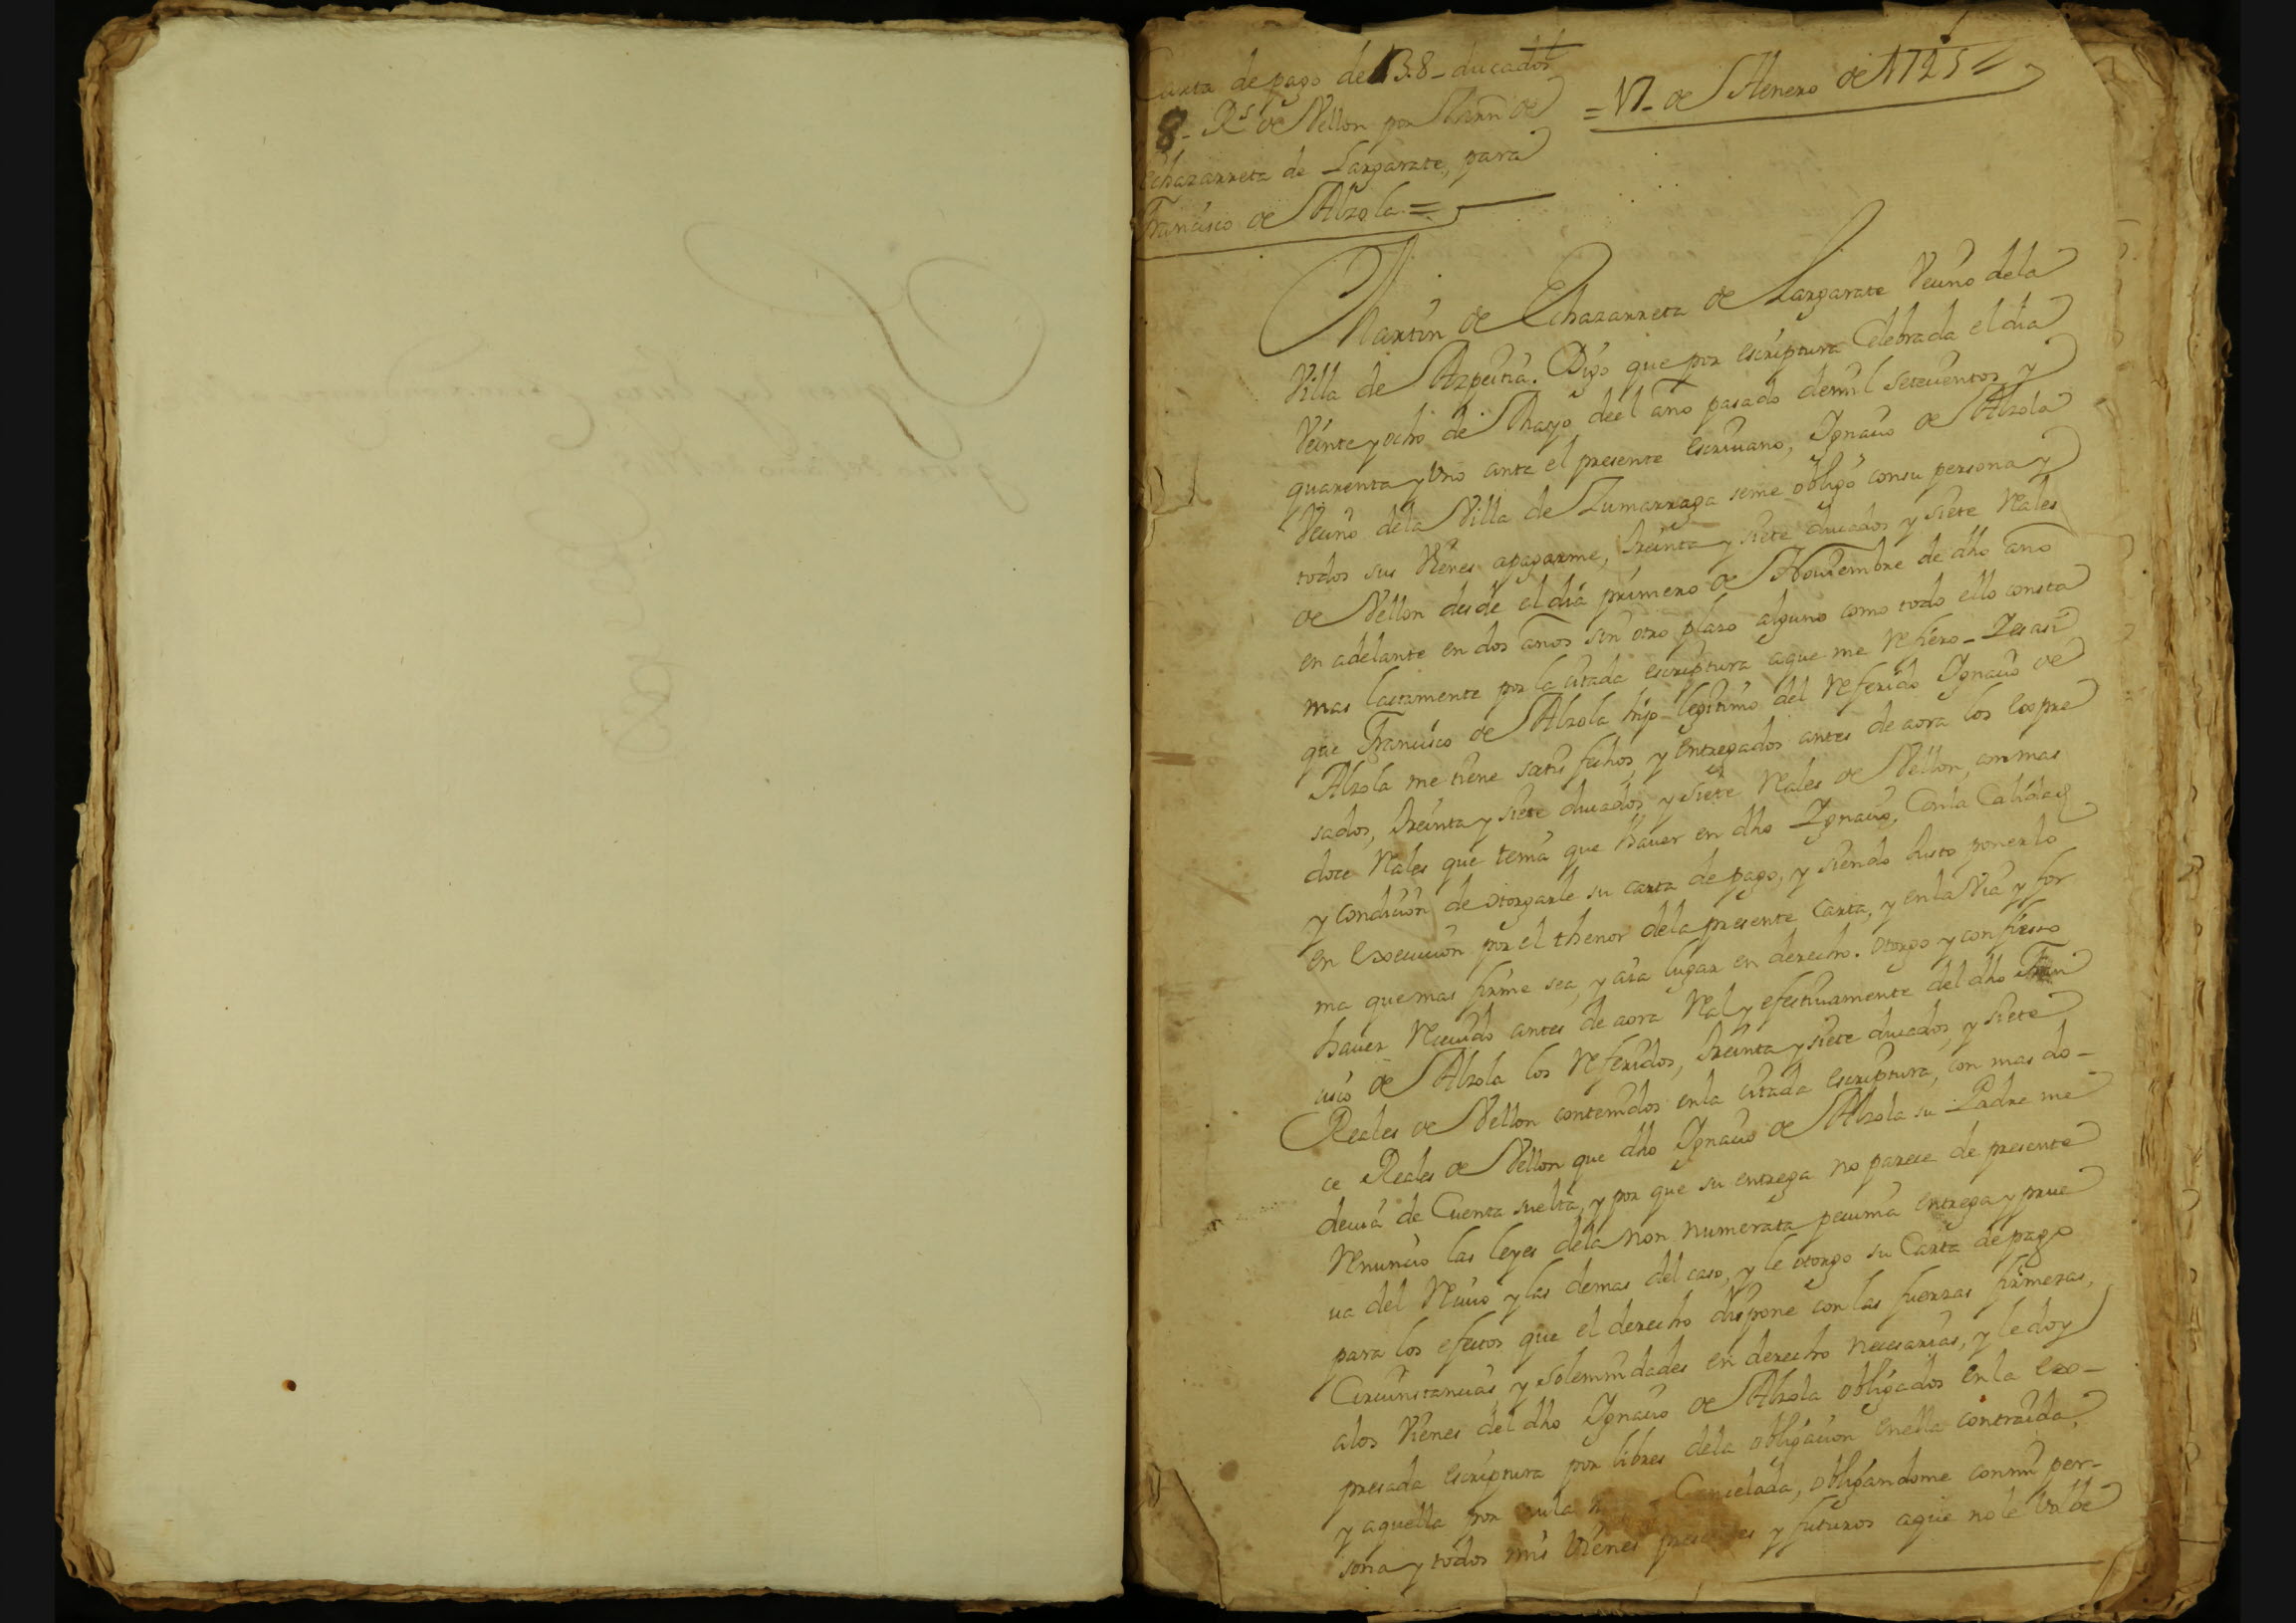 Carta de pago de 38 - ducados
8 - Rs de Vellon por Martin de
Echazarreta de Largarate, para
Francisco de Alzola =
= de Henero de 1745 =
Martin de Echazarreta de Largarate Vecino dela
Villa de Azpeitia. Digo que por escriptura Celebrada el dia
Veinte y ocho de Mayo deel año pasado demil setecientos y
quarenta y Uno ante el presente escriuano, Ignacio de Alzola
Vecino dela Villa de Zumarraga seme obligò consu persona y
todos sus Vienes apagarme, treinta y siete ducados y siete Reales
de Vellon desde el dia primero de Noviembre de dho año
en adelante en dos años sin otro plazo alguno como todo ello consta
mas lactamente por la citada escriptura aque me Refiero - Yes asi
que Francisco de Alzola hijo legitimo del Referido Ignacio de
Alzola me tiene satisfechos, y entregados antes de aora los expre
sados, treinta y siete ducados y siete Reales de Vellon, con mas
doce Reales que tenia que hauer en dho Ignacio, Con la Calidad
y condicion de otorgarle su carta de pago, y siendo Justo ponerlo
en execucion por el thenor dela presente Carta, y en la Via y for
ma que mas firme sea, y aia lugar en derecho. otorgo y confieso
hauer Reciuido antes de aora Real y efectiuamente del dho Fran
cisco de Alzola los Referidos, treinta y siete ducados, y siete
Reales de Vellon contenidos en la citada escriptura, con mas do-
ce Reales de Vellon que dho Ignacio de Alzola su Padre me
deuia de Cuenta suelta, y por que su entrega no parece de presente
Renuncio las leyes dela non numerata pecunia entrega y prue
ua del Reciuo y las demas del caso, y le otorgo su Carta de pago
para los efectos que el derecho dispone con las fuerzas firmezas,
Circunstancias y solemnidades en derecho necesarias, y le doy
alos Vienes del dho Ignacio de Alzola obligados en la ex-
presada escriptura por libres dela obligacion enella contraida,
y aquella por nula Cancelada, obligandome conmi per-
sona y todos mis Vienes presentes y futuros aque no le Volve